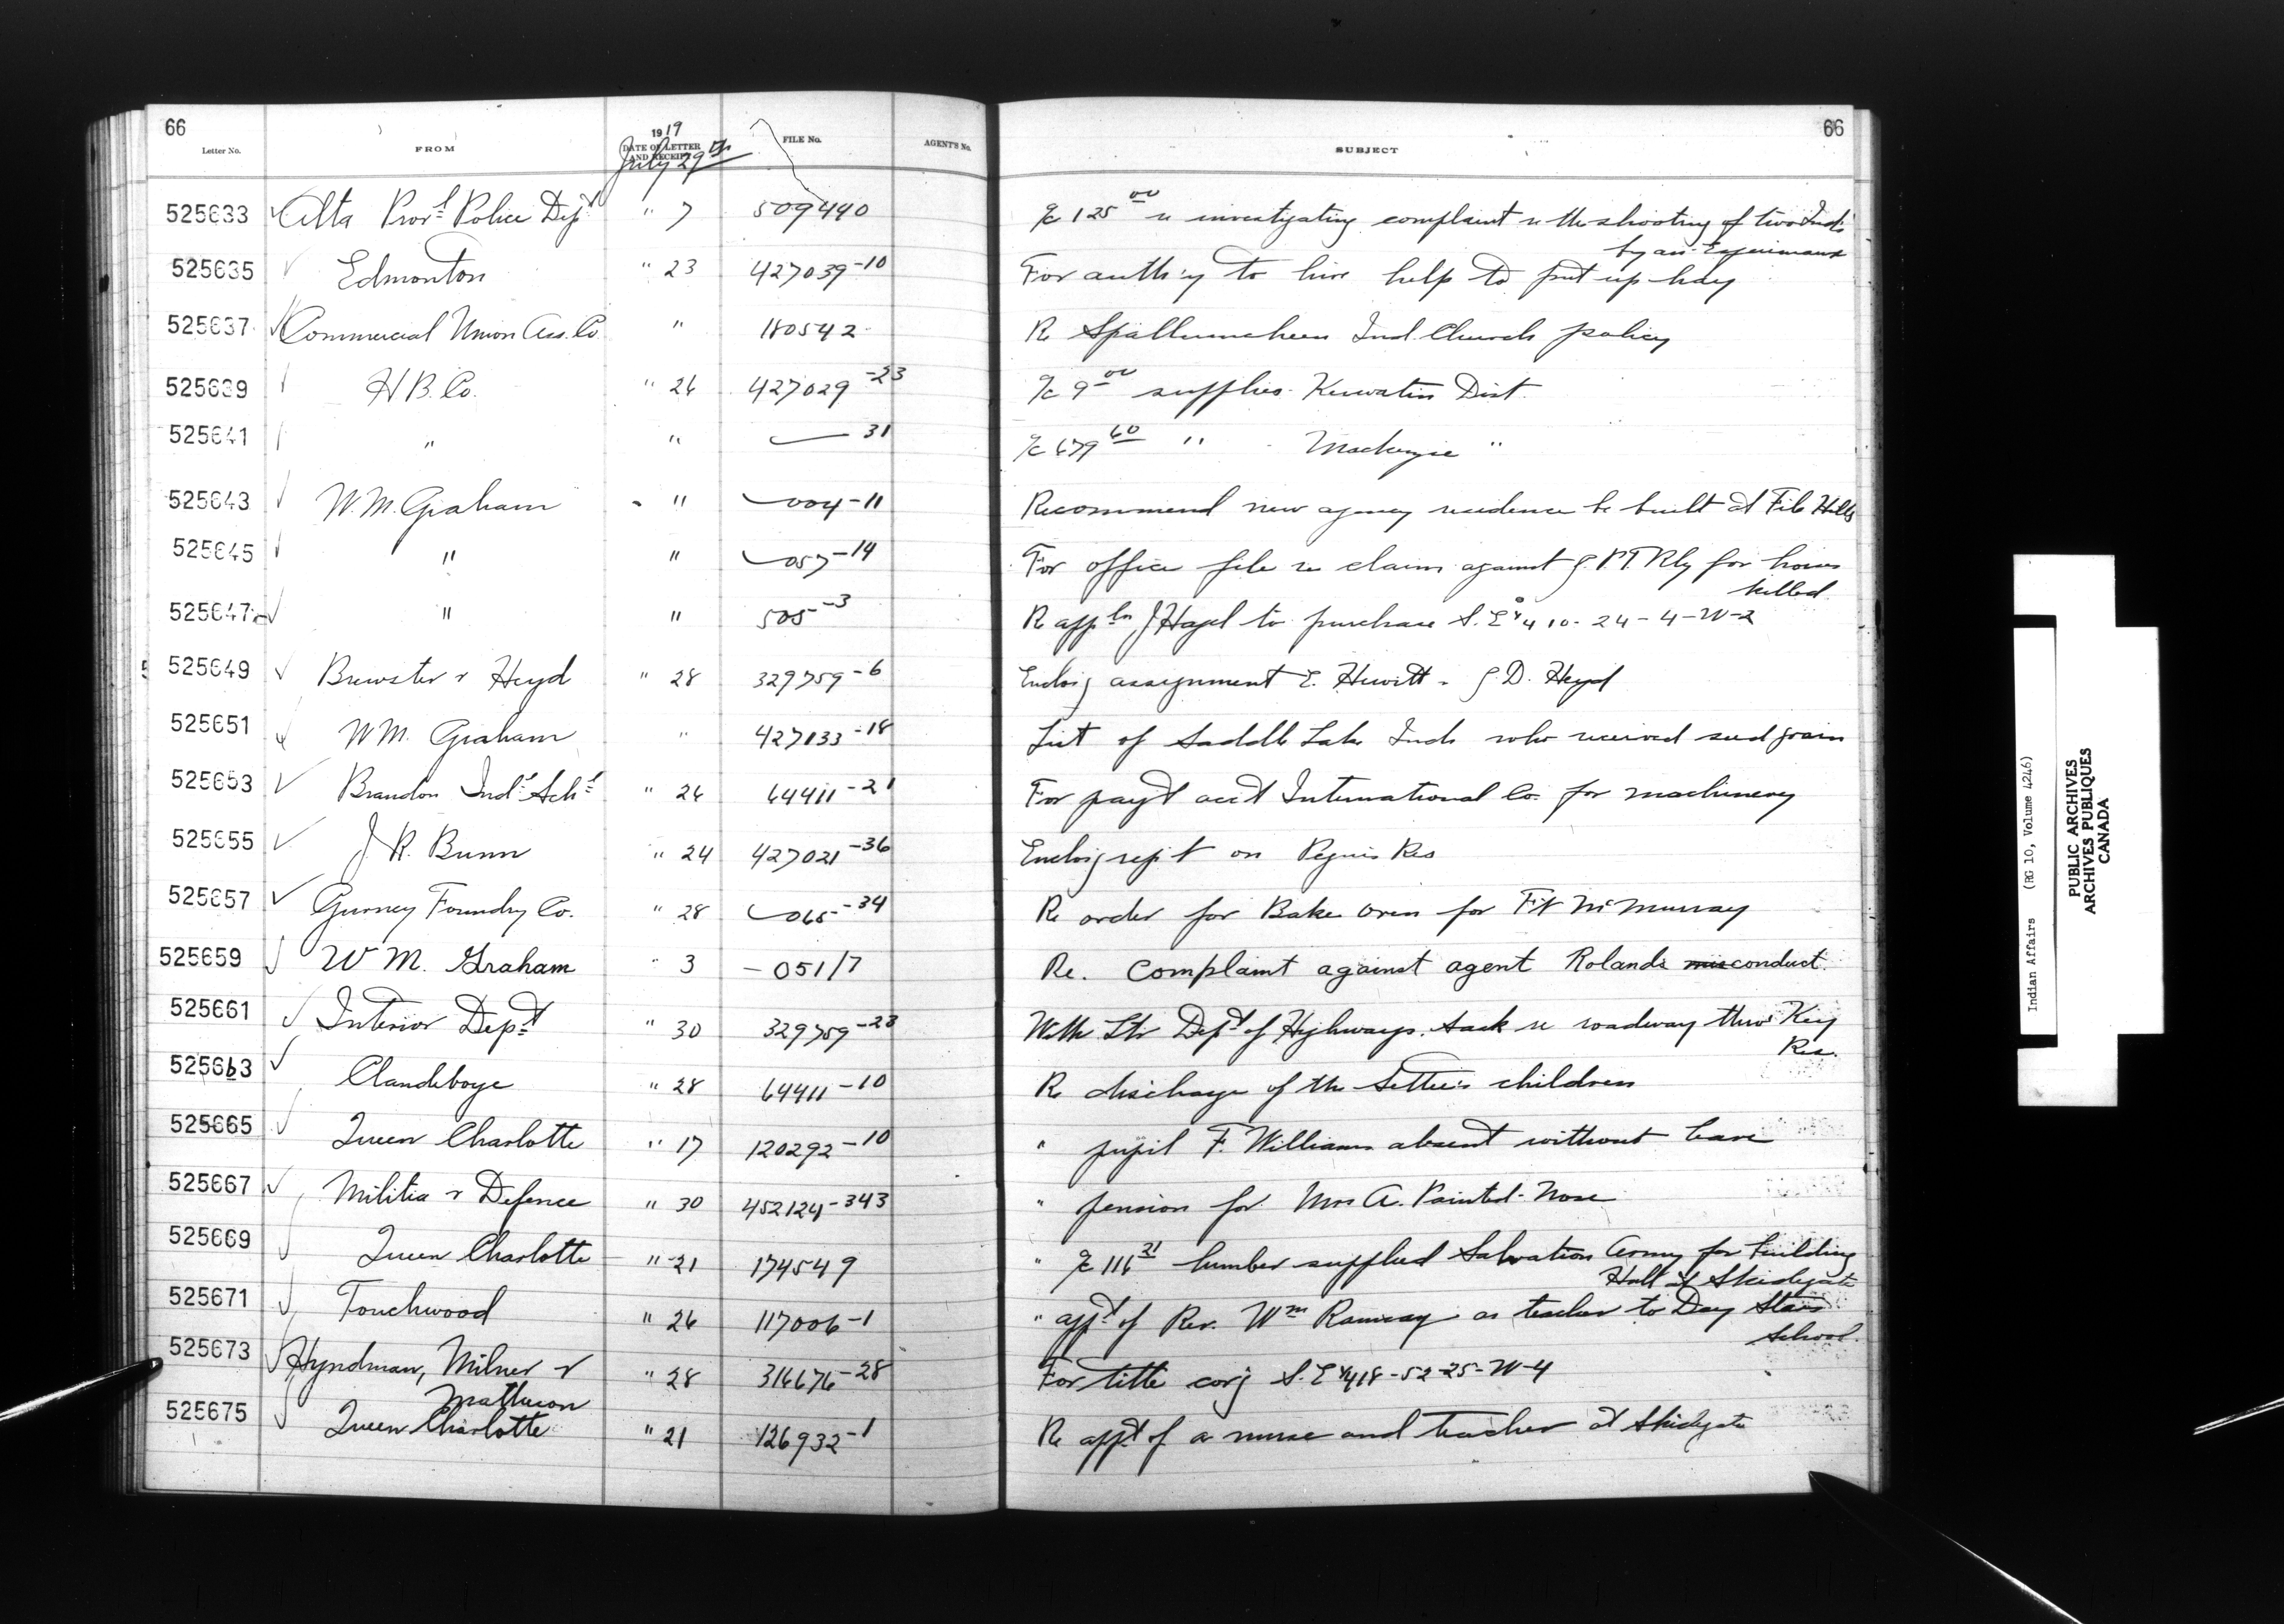 66
66
Letter No.
FROM
1919
DATE OF LETTER AND RECEIPT
July 29th
FILE No.
AGENT'S No.
SUBJECT
525633 Alta Provl Police Dept " 7 509440 a/c 125 00 re investigating complaint re the shooting of two Inds
by an
525635 Edmonton " 23 427039-10 For auth'y to hire help to put up hay
525637 Commercial Union Ass. Co " 180542 Re Spallumcheen Ind. Church policy
525639 H B. Co. " 26 427029-23 a/c 9 00 supplies Keewatin Dist.
525641 " " 31 a/c 679 60 " Mackenzie "
525643 W. M. Graham " 004-11 Recommend new agency residence be built at File Hills
525645 " " 057-14 For office file re claim against G.P.T. Rly for horses
killed
525647 " " 505-3 Re appln J Hazel to purchase S.E 1/4 10-24-4-W-2
525649 Brewster & Heyd " 28 329759-6 Enclosg assignment E. Hewitt - G. D. Heyd
525651 W M. Graham " 427133-18 List of Saddle Lake Inds who received seed grain
525653 Brandon Indl Schl " 26 64411-21 For pay't acc't International Co. for machinery
525655 J. R. Bunn " 24 427021-36 Enclosg rep't on Peguis Res
525657 Gurney Foundry Co. " 28 065-34 Re order for Bake oven for Ft McMurray
525659 W M. Graham " 3 -051/7 Re. Complaint against agent Rolands misconduct.
525661 Interior Dept " 30 329759-23 With Ltr Dept of Highways. Sask re roadway thro' Key
Res.
525663 Clandeboye " 28 64411-10 Re discharge of the Settee's children
525665 Queen Charlotte " 17 120292-10 " pupil F. Williams absent without leave
525667 Militia & Defence " 30 452124-343 " pension for Mrs A. Painted-Nose
525669 Queen Charlotte " 21 174549 " a/c 116 21 lumber supplied Salvation Army for building
Hall at Skidegate
525671 Touchwood " 26 117006-1 " appt of Rev. Wm Ramsay as teacher to Day Stars
School.
525673 Hyndman, Milner & " 28 316676-28 For title corg S.E 1/4 18-52-25-W-4
Matheson
525675 Queen Charlotte " 21 126932-1 Re appt of a nurse and teacher at Skidegate
Indian Affairs (RG 10, Volume 4246)
PUBLIC ARCHIVES
ARCHIVES PUBLIQUES
CANADA